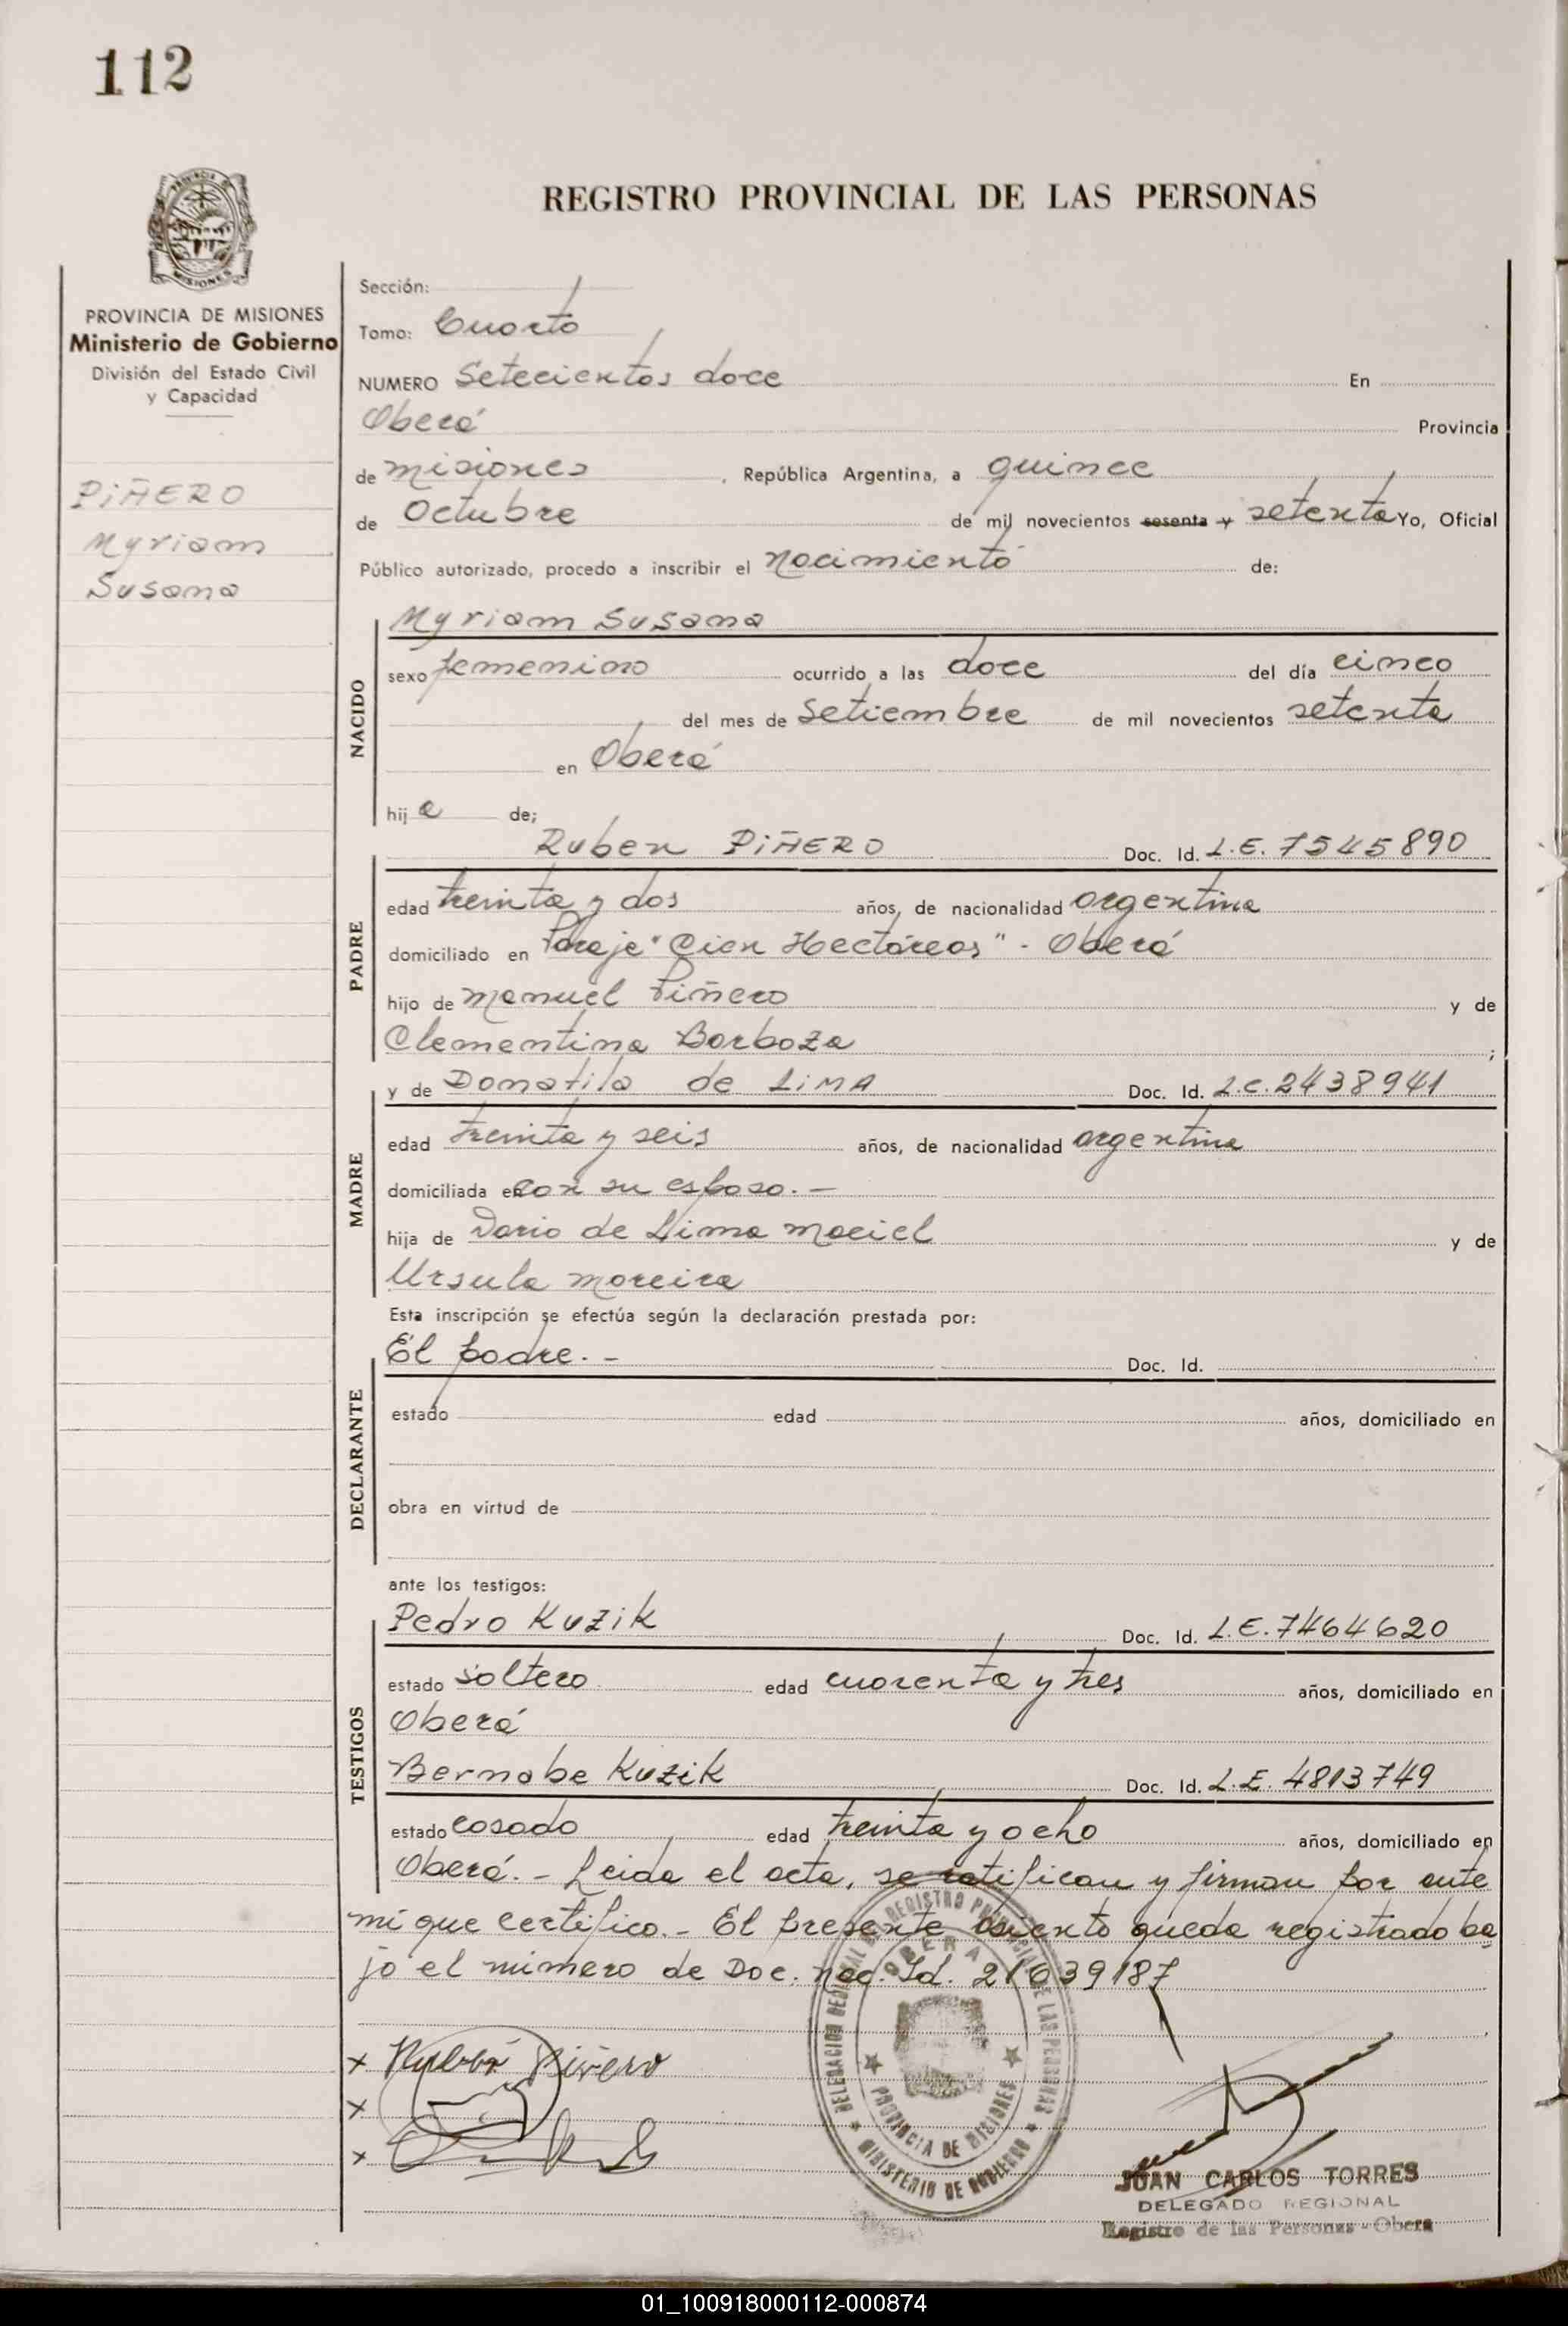 112
REGISTRO PROVINCIAL DE LAS PERSONAS
PROVINCIA DE MISIONES
Ministerio de Gobierno
División del Estado Civil
y Capacidad
PIÑERO
Myriam
Susana
Sección:
Tomo: Cuarto
NUMERO Setecientos doce En
Oberá Provincia
de misiones, República Argentina, a quince
de Octubre de mil novecientos sesenta y setenta Yo, Oficial
Público autorizado, procedo a inscribir el nacimiento de:
Myriam Susana
NACIDO
sexo femenino ocurrido a las doce del día cinco
del mes de Setiembre de mil novecientos setenta
en Oberá
hij a de;
Ruben PIÑERO Doc. Id. L.E. 7545890
PADRE
edad treinta y dos años, de nacionalidad argentina
domiciliado en Paraje "Cien Hectáreas" - Oberá
hijo de Manuel Piñero y de
Clementina Borboza ;
y de Donatila de LIMA Doc. Id. L.C. 2438941
MADRE
edad treinta y seis años, de nacionalidad argentina
domiciliada en con su esposo. -
hija de Dario de Lima Maciel y de
Ursula Moreira
Esta inscripción se efectúa según la declaración prestada por:
El padre. - Doc. Id.
DECLARANTE
estado edad años, domiciliado en
obra en virtud de
ante los testigos:
Pedro Kuzik Doc. Id. L.E. 7464620
TESTIGOS
estado soltero edad cuarenta y tres años, domiciliado en
Oberá
Bernabe Kuzik Doc. Id. L.E. 4813749
estado casado edad treinta y ocho años, domiciliado en
Oberá. - Leida el acta, se ratifican y firman por ante
mi que certifico. - El presente asiento queda registrado ba
jo el número de Doc. Nac. Id. 21639187
DELEGACION REGIONAL DEL REGISTRO PROVINCIAL DE LAS PERSONAS
OBERA
PROVINCIA DE MISIONES
MINISTERIO DE GOBIERNO
x Rubén Piñero
x
x
JUAN CARLOS TORRES
DELEGADO REGIONAL
Registro de las Personas - Obera
01_100918000112-000874